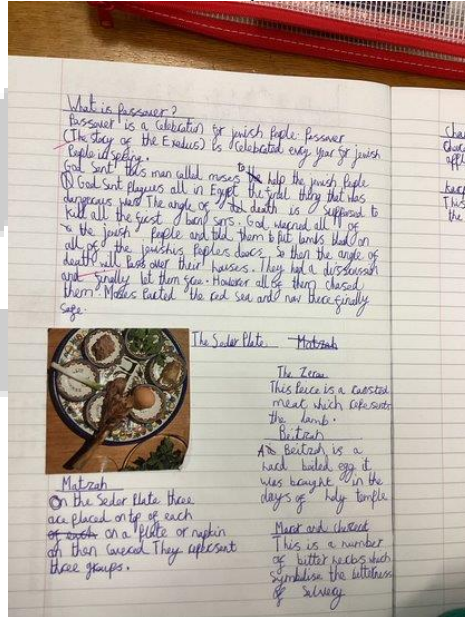 What is Passover?
Passover is a Celebration for jewish People. Passover
(The story of the Exodus) is Celebrated every year for jewish
People in spring.
God Sent this man called moses to help the jewish People
God Sent Plagues all in Egypt the final thing that was
dangerous was The angle of death is Supposed to
kill all the first born sons. God warned all of
the jewish People and told them to Put lambs blood on
all of the jewishs Peoples doors. So then the angle of
death will Pass over their houses. They had a
and finally let them free. However all of them chased
them. Moses Parted the red Sea and now there finally
Safe.
The Seder Plate Matzah
The
This Peice is a roasted
meat which represents
the lamb.
Beitzah
Beitzah is a
hard boiled egg it
was brought in the
days of holy temple
Matzah
On the Seder Plate three
are placed on top of each
of each on a Plate or napkin
then Covered They represent
three groups.
Maror and
This is a number
of bitter herbs which
Symbolise the bitterness
of Salvery
This
the